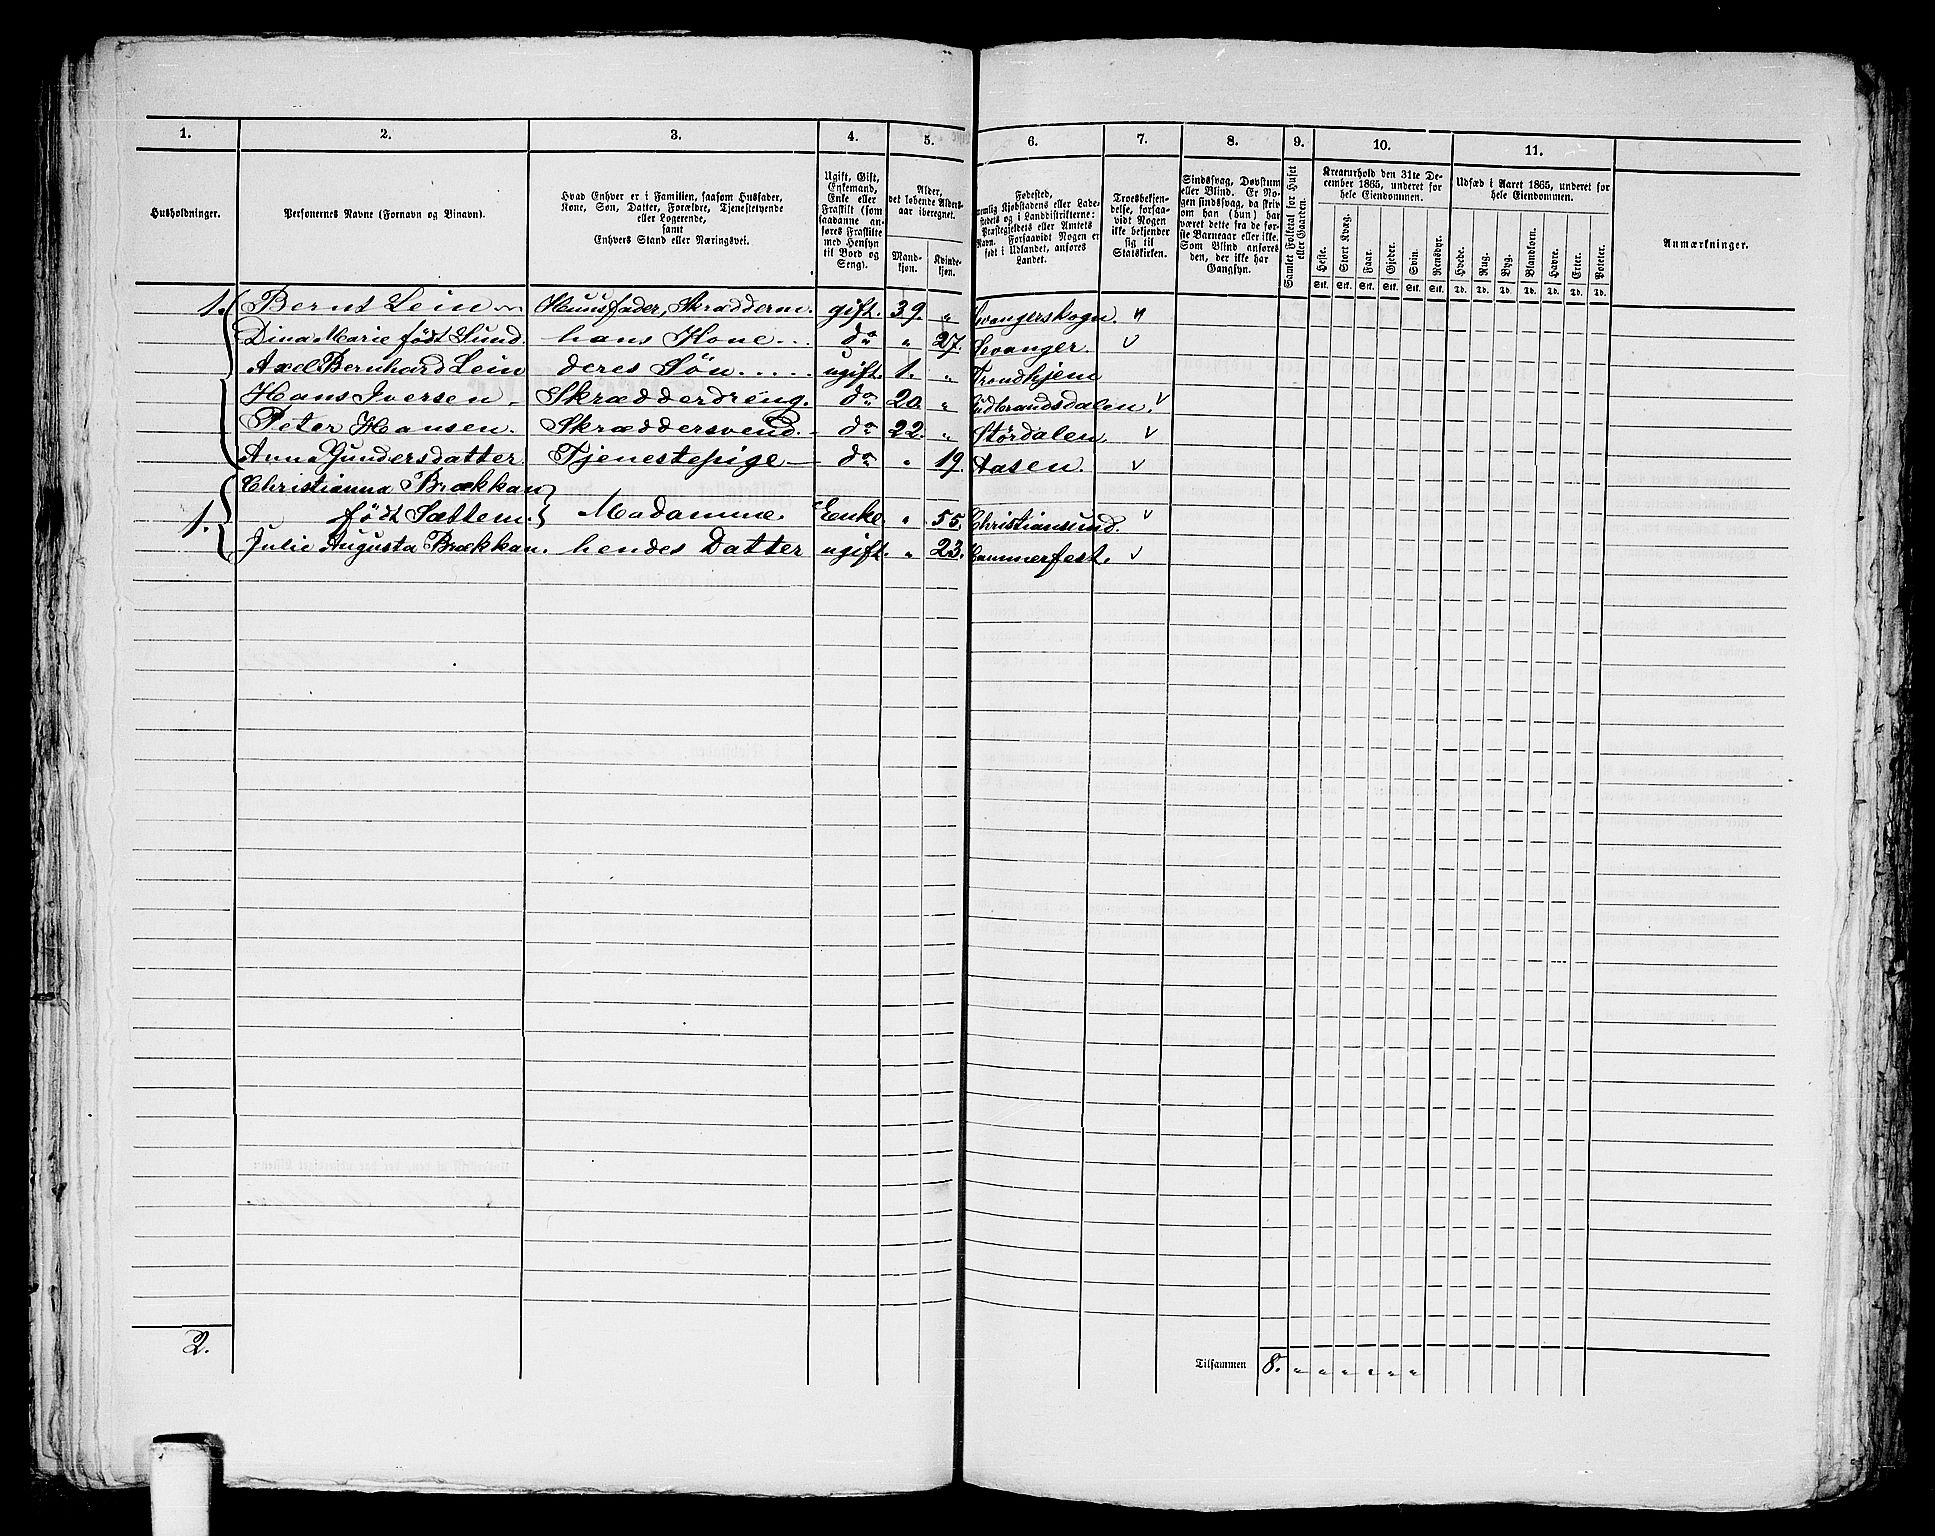 1. 2. 3. 4. 5. 6. 7. 8. 9. 10. 11.
Husholdninger.
Personernes Navne (Fornavn og Binavn).
Hvad Enhver er i Familien, saasom Husfader,
Kone, Søn, Datter, Forældre, Tjenestetyende
eller Logerende,
samt
Enhvers Stand eller Næringsvei.
Ugift, Gift,
Enkemand,
Enke eller
Fraskilt (som
saadanne an-
føres Fraskilte
med Hensyn
til Bord og
Seng).
Alder,
det løbende Alders-
aar iberegnet.
Mand-
kjøn.
Kvinde-
kjøn.
Fødested,
nemlig Kjøbstadens eller Lade-
stedets og i Landdistrikterne:
Præstegjeldets eller Amtets
Navn. Forsaavidt Nogen er
født i Udlandet, anføres
Landet.
Troesbekjen-
delse, forsaa-
vidt Nogen
ikke bekjender
sig til
Statskirken.
Sindssvag, Døvstum
eller Blind. Er No-
gen sindssvag, da skriv
om han (hun) har
været dette fra de før-
ste Barneaar eller ikke.
Som Blind anføres
den, der ikke har
Gangsyn.
Samlet Folketal for Huset
eller Gaarden.
Kreaturhold den 31te De-
cember 1865, underet for
hele Eiendommen.
Heste. Stort Kvæg. Faar. Gjeder. Svin. Rensdyr.
Stk. Stk. Stk. Stk. Stk. Stk.
Udsæd i Aaret 1865, underet for
hele Eiendommen.
Hvede. Rug. Byg. Blandkorn. Havre. Erter. Poteter.
Td. Td. Td. Td. Td. Td. Td.
Anmærkninger.
1. Bernt Lein Huusfader, Skrædderm. gift. 39. „ Levangerskogn. „
Dina Marie født Lund. hans Kone do „ 27. Levanger. v
Axel Bernhard Lein deres Søn ugift. 1. „ Trondhjem
Hans Iversen Skrædderdreng. do 20. „ Gudbrandsdalen. v
Peter Hansen. Skræddersvend. do 22. „ Stördalen. v
Anna Gundersdatter. Tjenestepige do „ 19. Aasen. v
Christianna Brækkan
1. født Sættem. Madamme. Enke. „ 55. Christiansund. v
Julie Augusta Brækkan. hendes Datter ugift. „ 23. Hammerfest. v
2.
Tilsammen 8. „ „ „ „ „ „